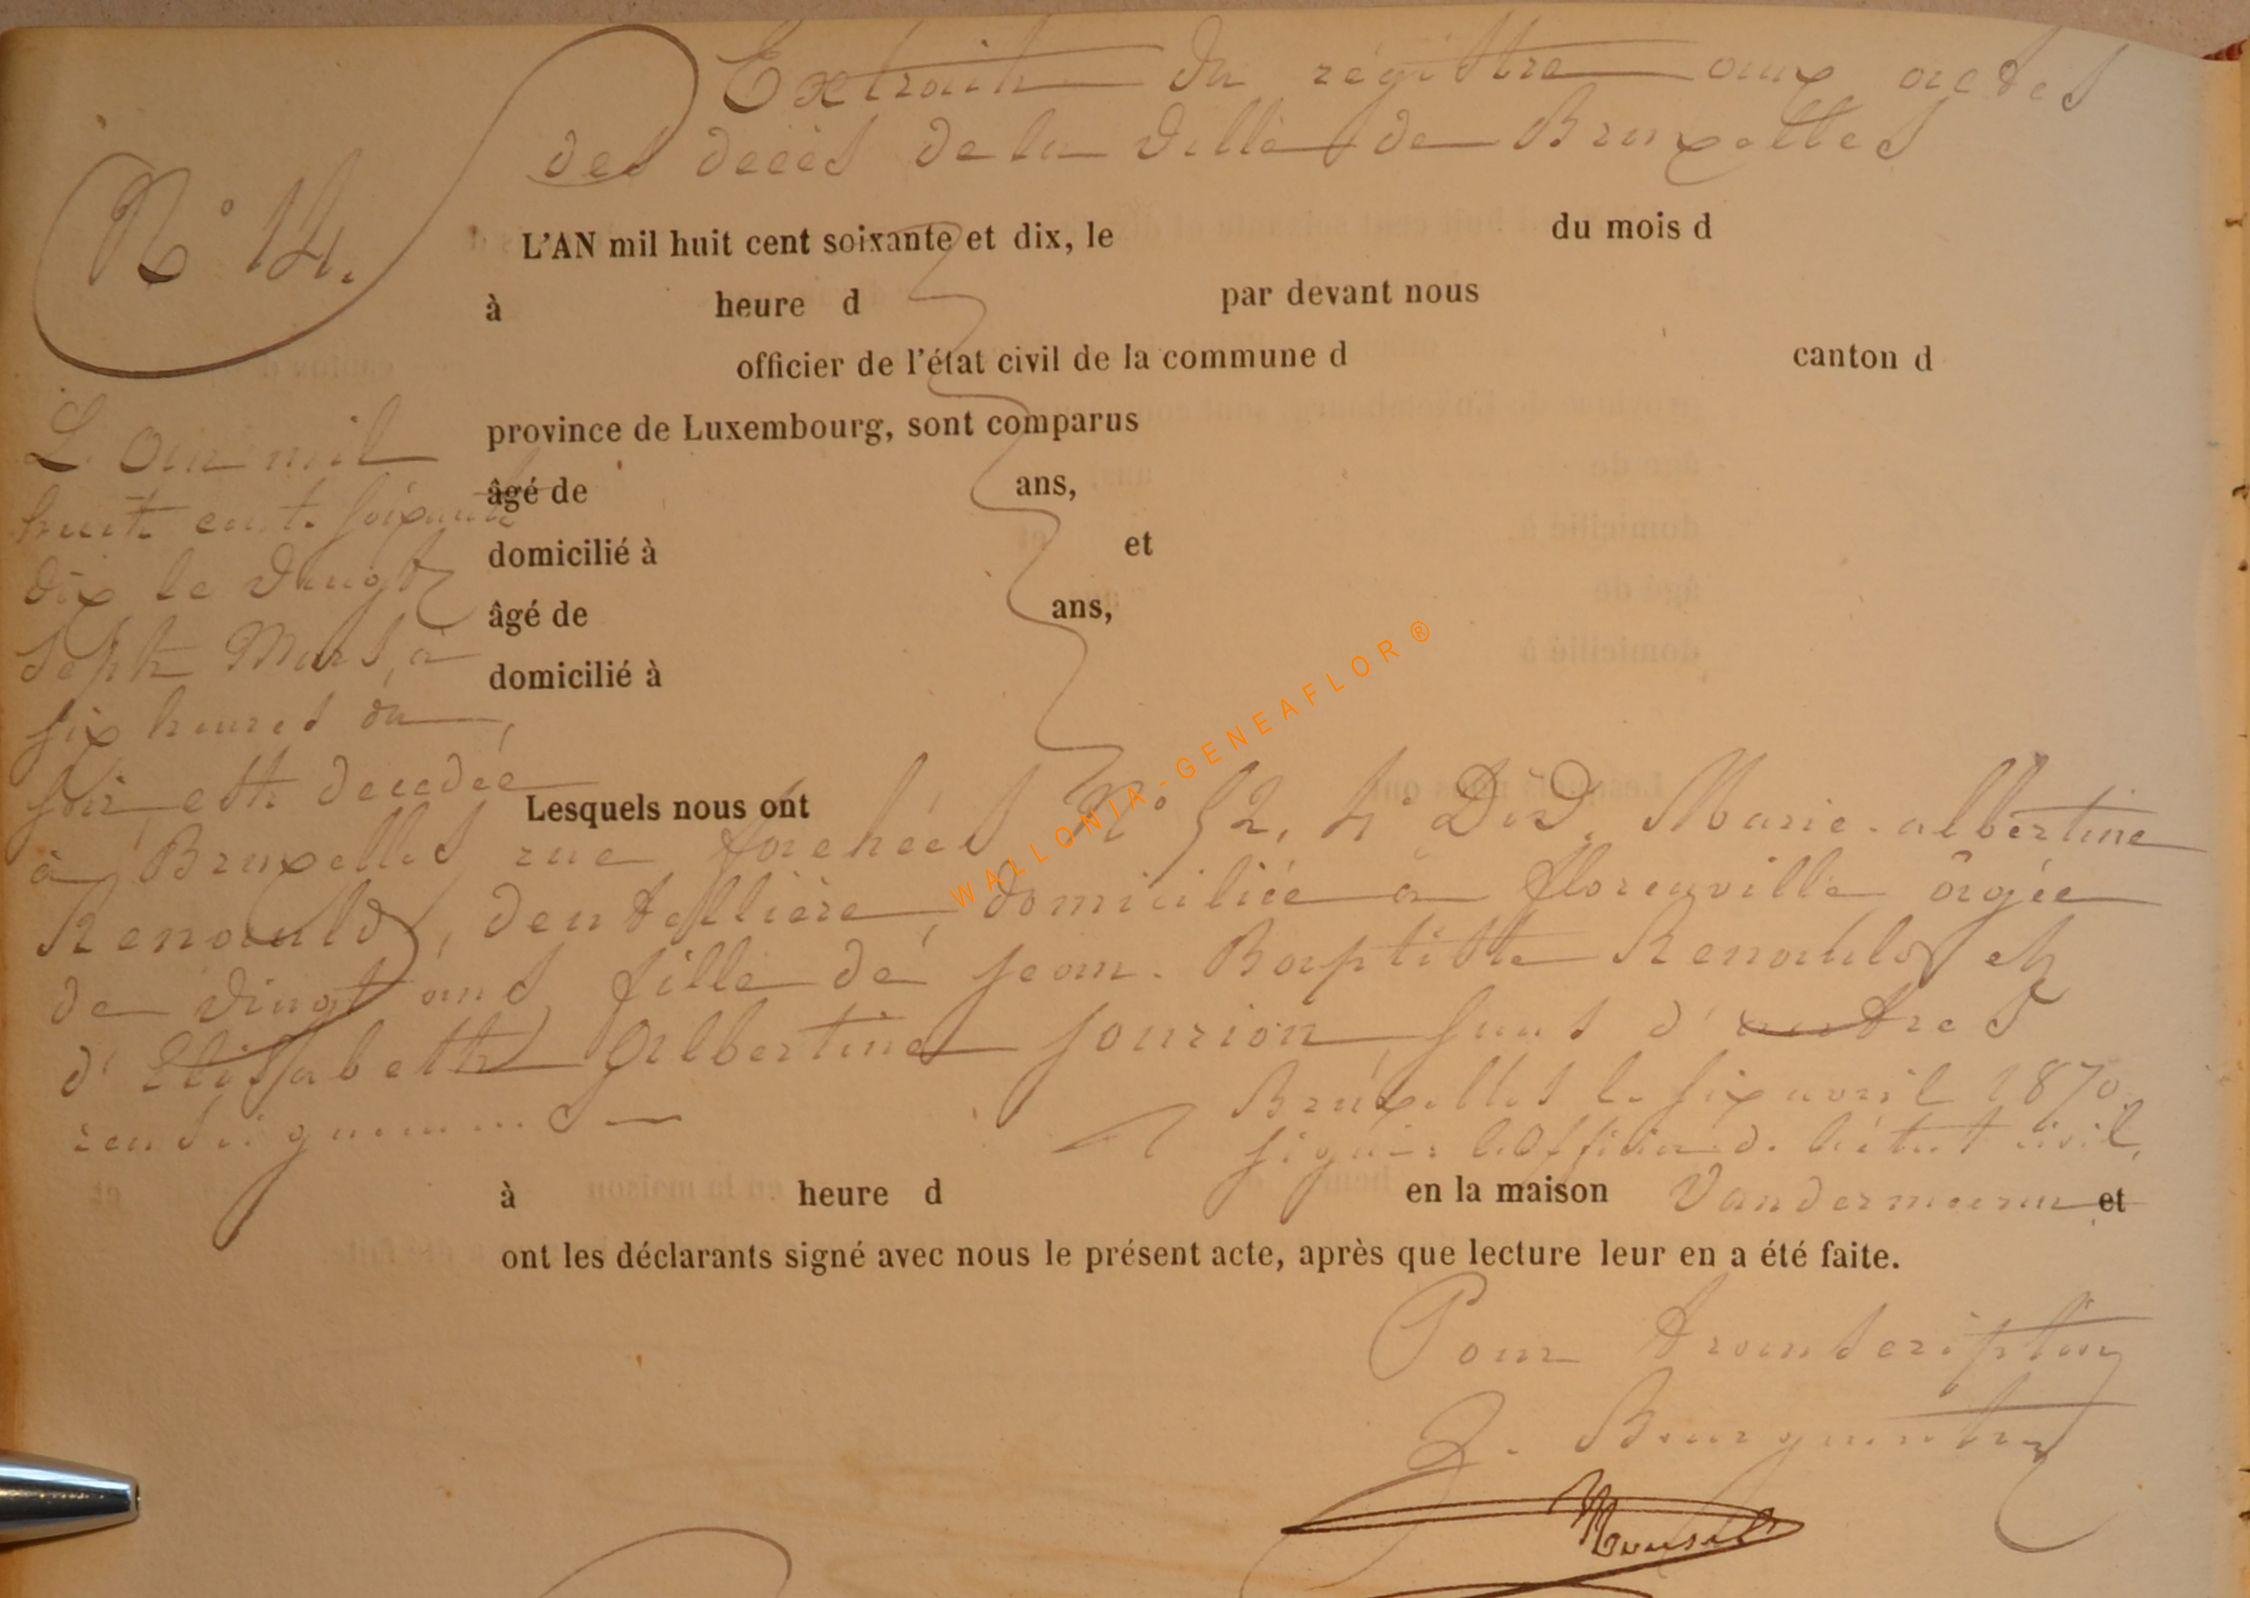 Extrait du régittre aux actes
des décès de la Ville de Bruxelles
N° 14.
L'AN mil huit cent soixante et dix, le du mois d
à heure d par devant nous
officier de l'état civil de la commune d canton d
province de Luxembourg, sont comparus
âgé de ans,
domicilié à et
âgé de ans,
domicilié à
L'an mil
huit cent soixante
dix le Vingt
sept Mars, à
six heures du
soir, est decedée
Lesquels nous ont
à Bruxelles rue N° 52, 4e Don, Marie-albertine
Renauld, dentellière, domiciliée à florenville âgée
de Vingt ans, fille de jean-Baptiste Renauld et
d'Elisabeth Gilbertine jourion, suns d'autres
renseignements
Bruxelles le six avril 1870.
signé: l'Officier de l'état civil,
Vandermeeren
à heure d en la maison et
ont les déclarants signé avec nous le présent acte, après que lecture leur en a été faite.
Pour transcription
WALLONIA-GENEAFLOR®